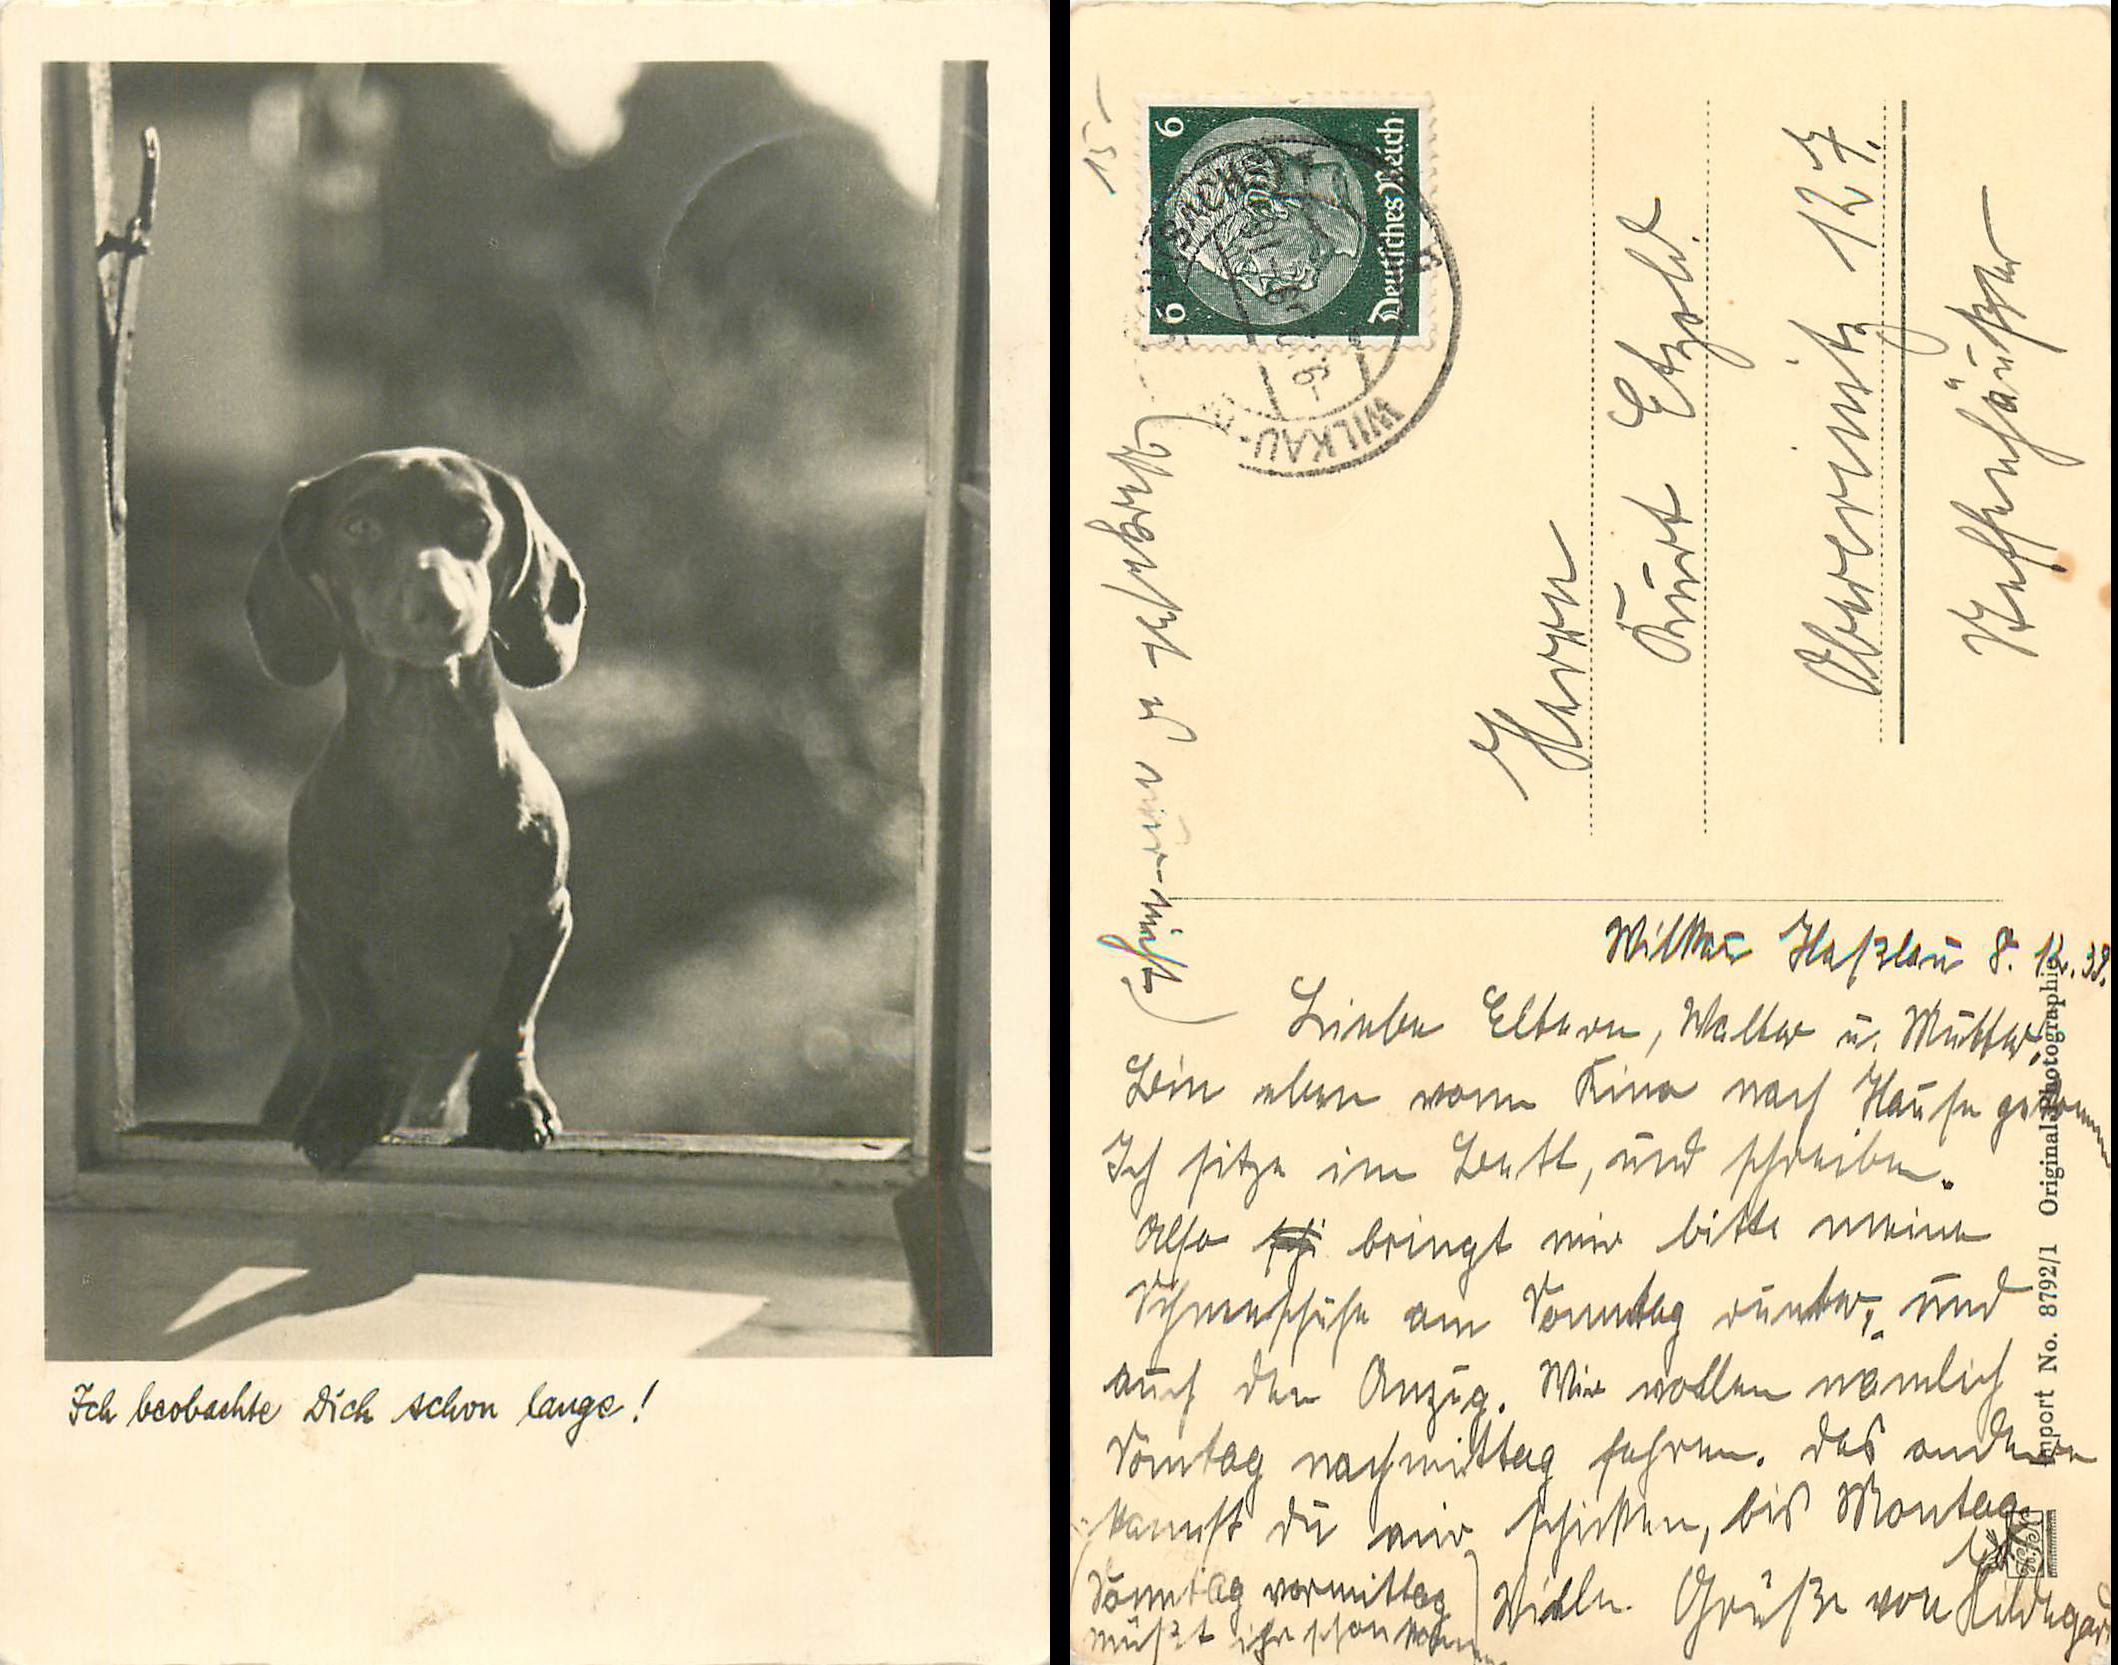 Ich beobachte Dich schon lange!
15
6 6
Deutsches Reich
WILKAU-
Herrn
Kurt Etzold.
Obercrinitz 127.
Wilkau Haßlau 8. 12. 39.
Liebe Eltern, Walter u. Mutter,
Bin eben vom Kino nach Hause gekommen
Ich sitze im Bett, und schreibe.
Also bringt mir bitte meine
Schneeschuhe am Sonntag runter, und
auch den Anzug. Wir wollen nämlich
Sonntag nachmittag fahren. Das andere
kannst du mir schicken, bis Montag.
(Sonntag vormittag
müßt ihr schon kommen)
Viele Grüße von Hildegard
Import No. 8792/1 Original-Photographie